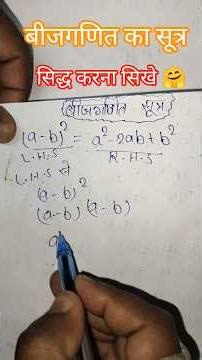 बीजगणित का सूत्र
सिद्ध करना सिखे 🤗
{बीजगणित सूत्र}
(a-b)² = a²-2ab+b²
L.H.S R.H.S
L.H.S से
(a-b)²
(a-b) (a-b)
a